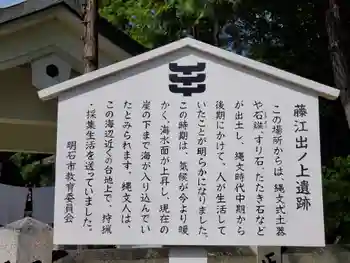 藤江出ノ上遺跡
この場所からは、縄文式土器
や石鏃・すり石・たたき石など
が出土し、縄文時代中期から
後期にかけて、人が生活して
いたことが明らかになりました。
この時期は、気候が今より暖
かく、海水面が上昇し、現在の
崖の下まで海が入り込んでい
たとみられます。縄文人は、
この海辺近くの台地上で、狩猟
・採集生活を送っていました。
明石市教育委員会